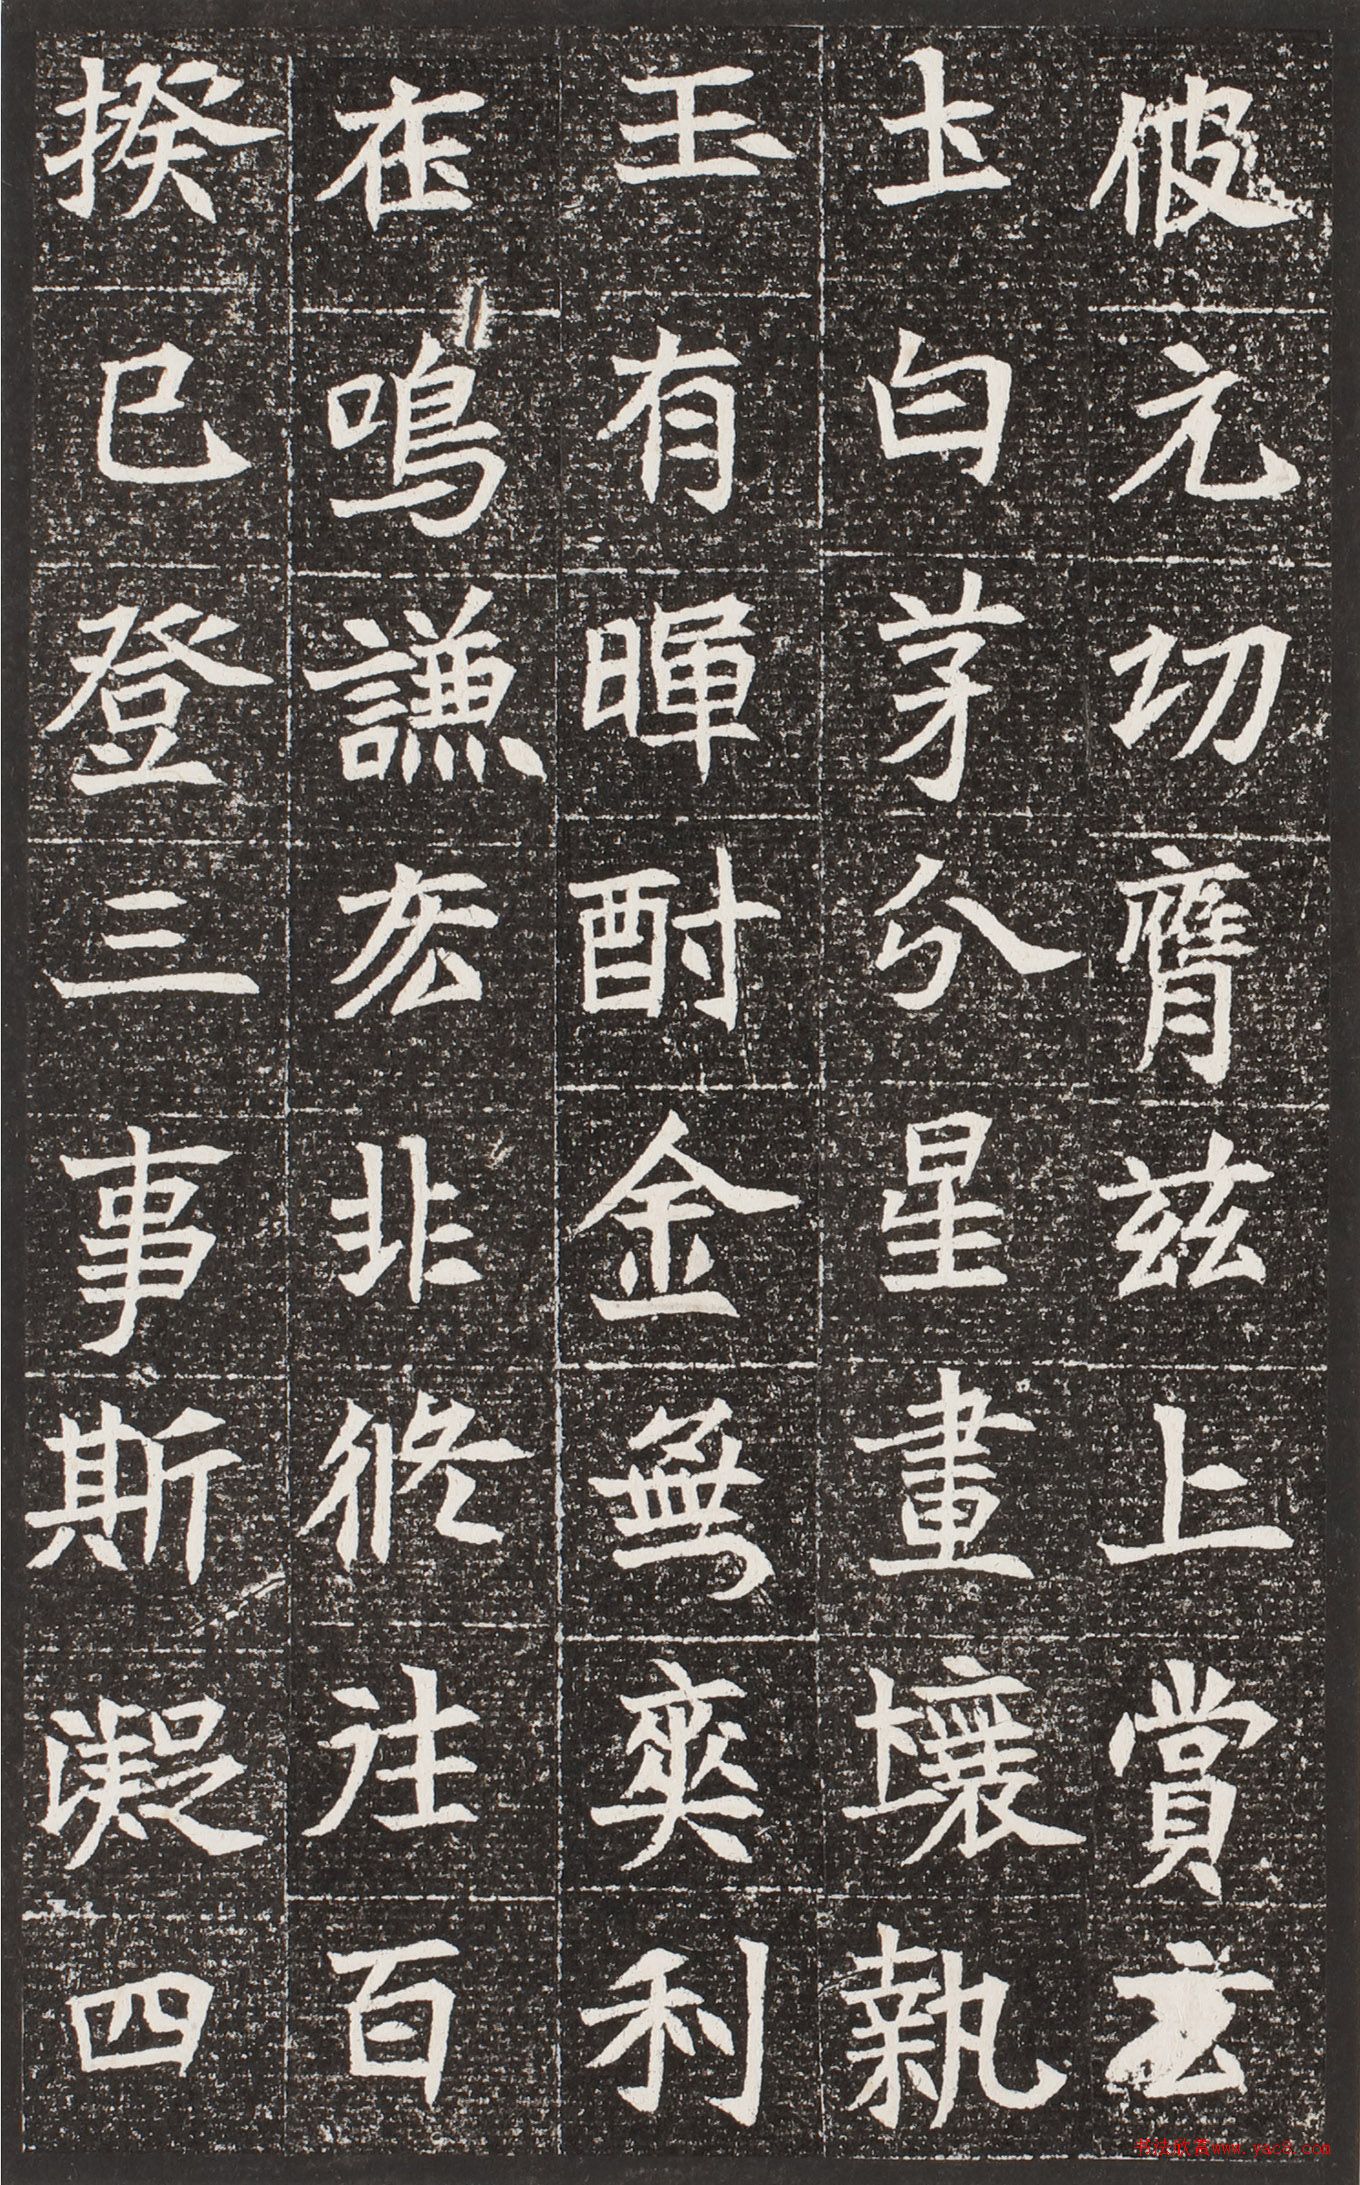 彼元功膺茲上賞玄
土白茅分星畫壤執
玉有暉酎金無爽利
在鳴謙非攸往百
揆已登三事斯凝四
书法欣赏www.yac8.com